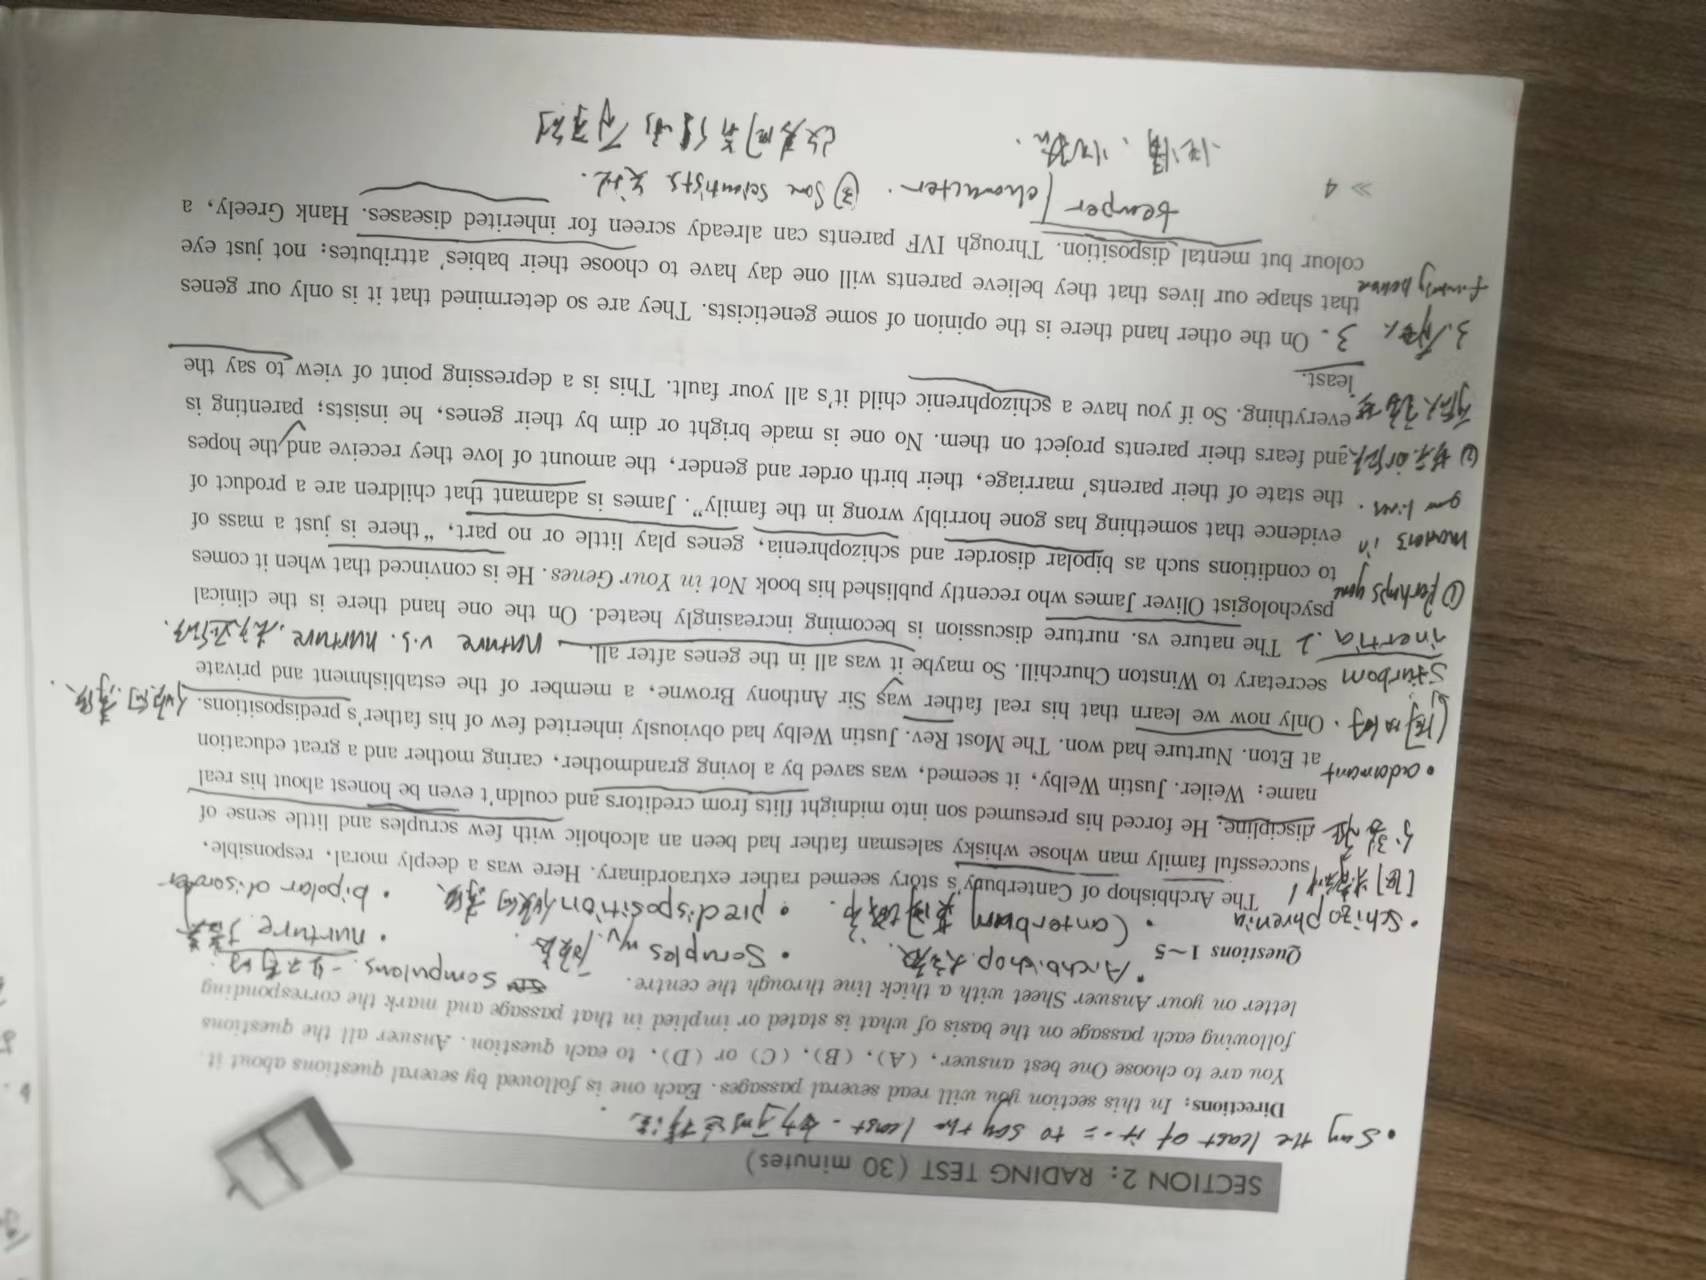 SECTION 2: RADING TEST (30 minutes)
• Say the least of it. = to say the least -
Directions: In this section you will read several passages. Each one is followed by several questions about it.
You are to choose One best answer, (A), (B), (C) or (D), to each question. Answer all the questions
following each passage on the basis of what is stated or implied in that passage and mark the corresponding
letter on your Answer Sheet with a thick line through the centre.
Questions 1~5
• Archbishop 大主教.
• nurture
• Schizophrenia
• predisposition 倾向
• bipolar disorder
The Archbishop of Canterbury's story seemed rather extraordinary. Here was a deeply moral, responsible,
successful family man whose whisky salesman father had been an alcoholic with few scruples and little sense of
discipline. He forced his presumed son into midnight flits from creditors and couldn't even be honest about his real
name: Weiler. Justin Welby, it seemed, was saved by a loving grandmother, caring mother and a great education
• adamant
at Eton. Nurture had won. The Most Rev. Justin Welby had obviously inherited few of his father's predispositions.
Only now we learn that his real father was Sir Anthony Browne, a member of the establishment and private
secretary to Winston Churchill. So maybe it was all in the genes after all.
nature v.s. nurture.
inertia.
2 The nature vs. nurture discussion is becoming increasingly heated. On the one hand there is the clinical
psychologist Oliver James who recently published his book Not in Your Genes. He is convinced that when it comes
to conditions such as bipolar disorder and schizophrenia, genes play little or no part, "there is just a mass of
evidence that something has gone horribly wrong in the family". James is adamant that children are a product of
the state of their parents' marriage, their birth order and gender, the amount of love they receive and the hopes
and fears their parents project on them. No one is made bright or dim by their genes, he insists; parenting is
everything. So if you have a schizophrenic child it's all your fault. This is a depressing point of view to say the
least.
3. On the other hand there is the opinion of some geneticists. They are so determined that it is only our genes
that shape our lives that they believe parents will one day have to choose their babies' attributes: not just eye
colour but mental disposition. Through IVF parents can already screen for inherited diseases. Hank Greely, a
temper / character.
③ Some scientists
>> 4